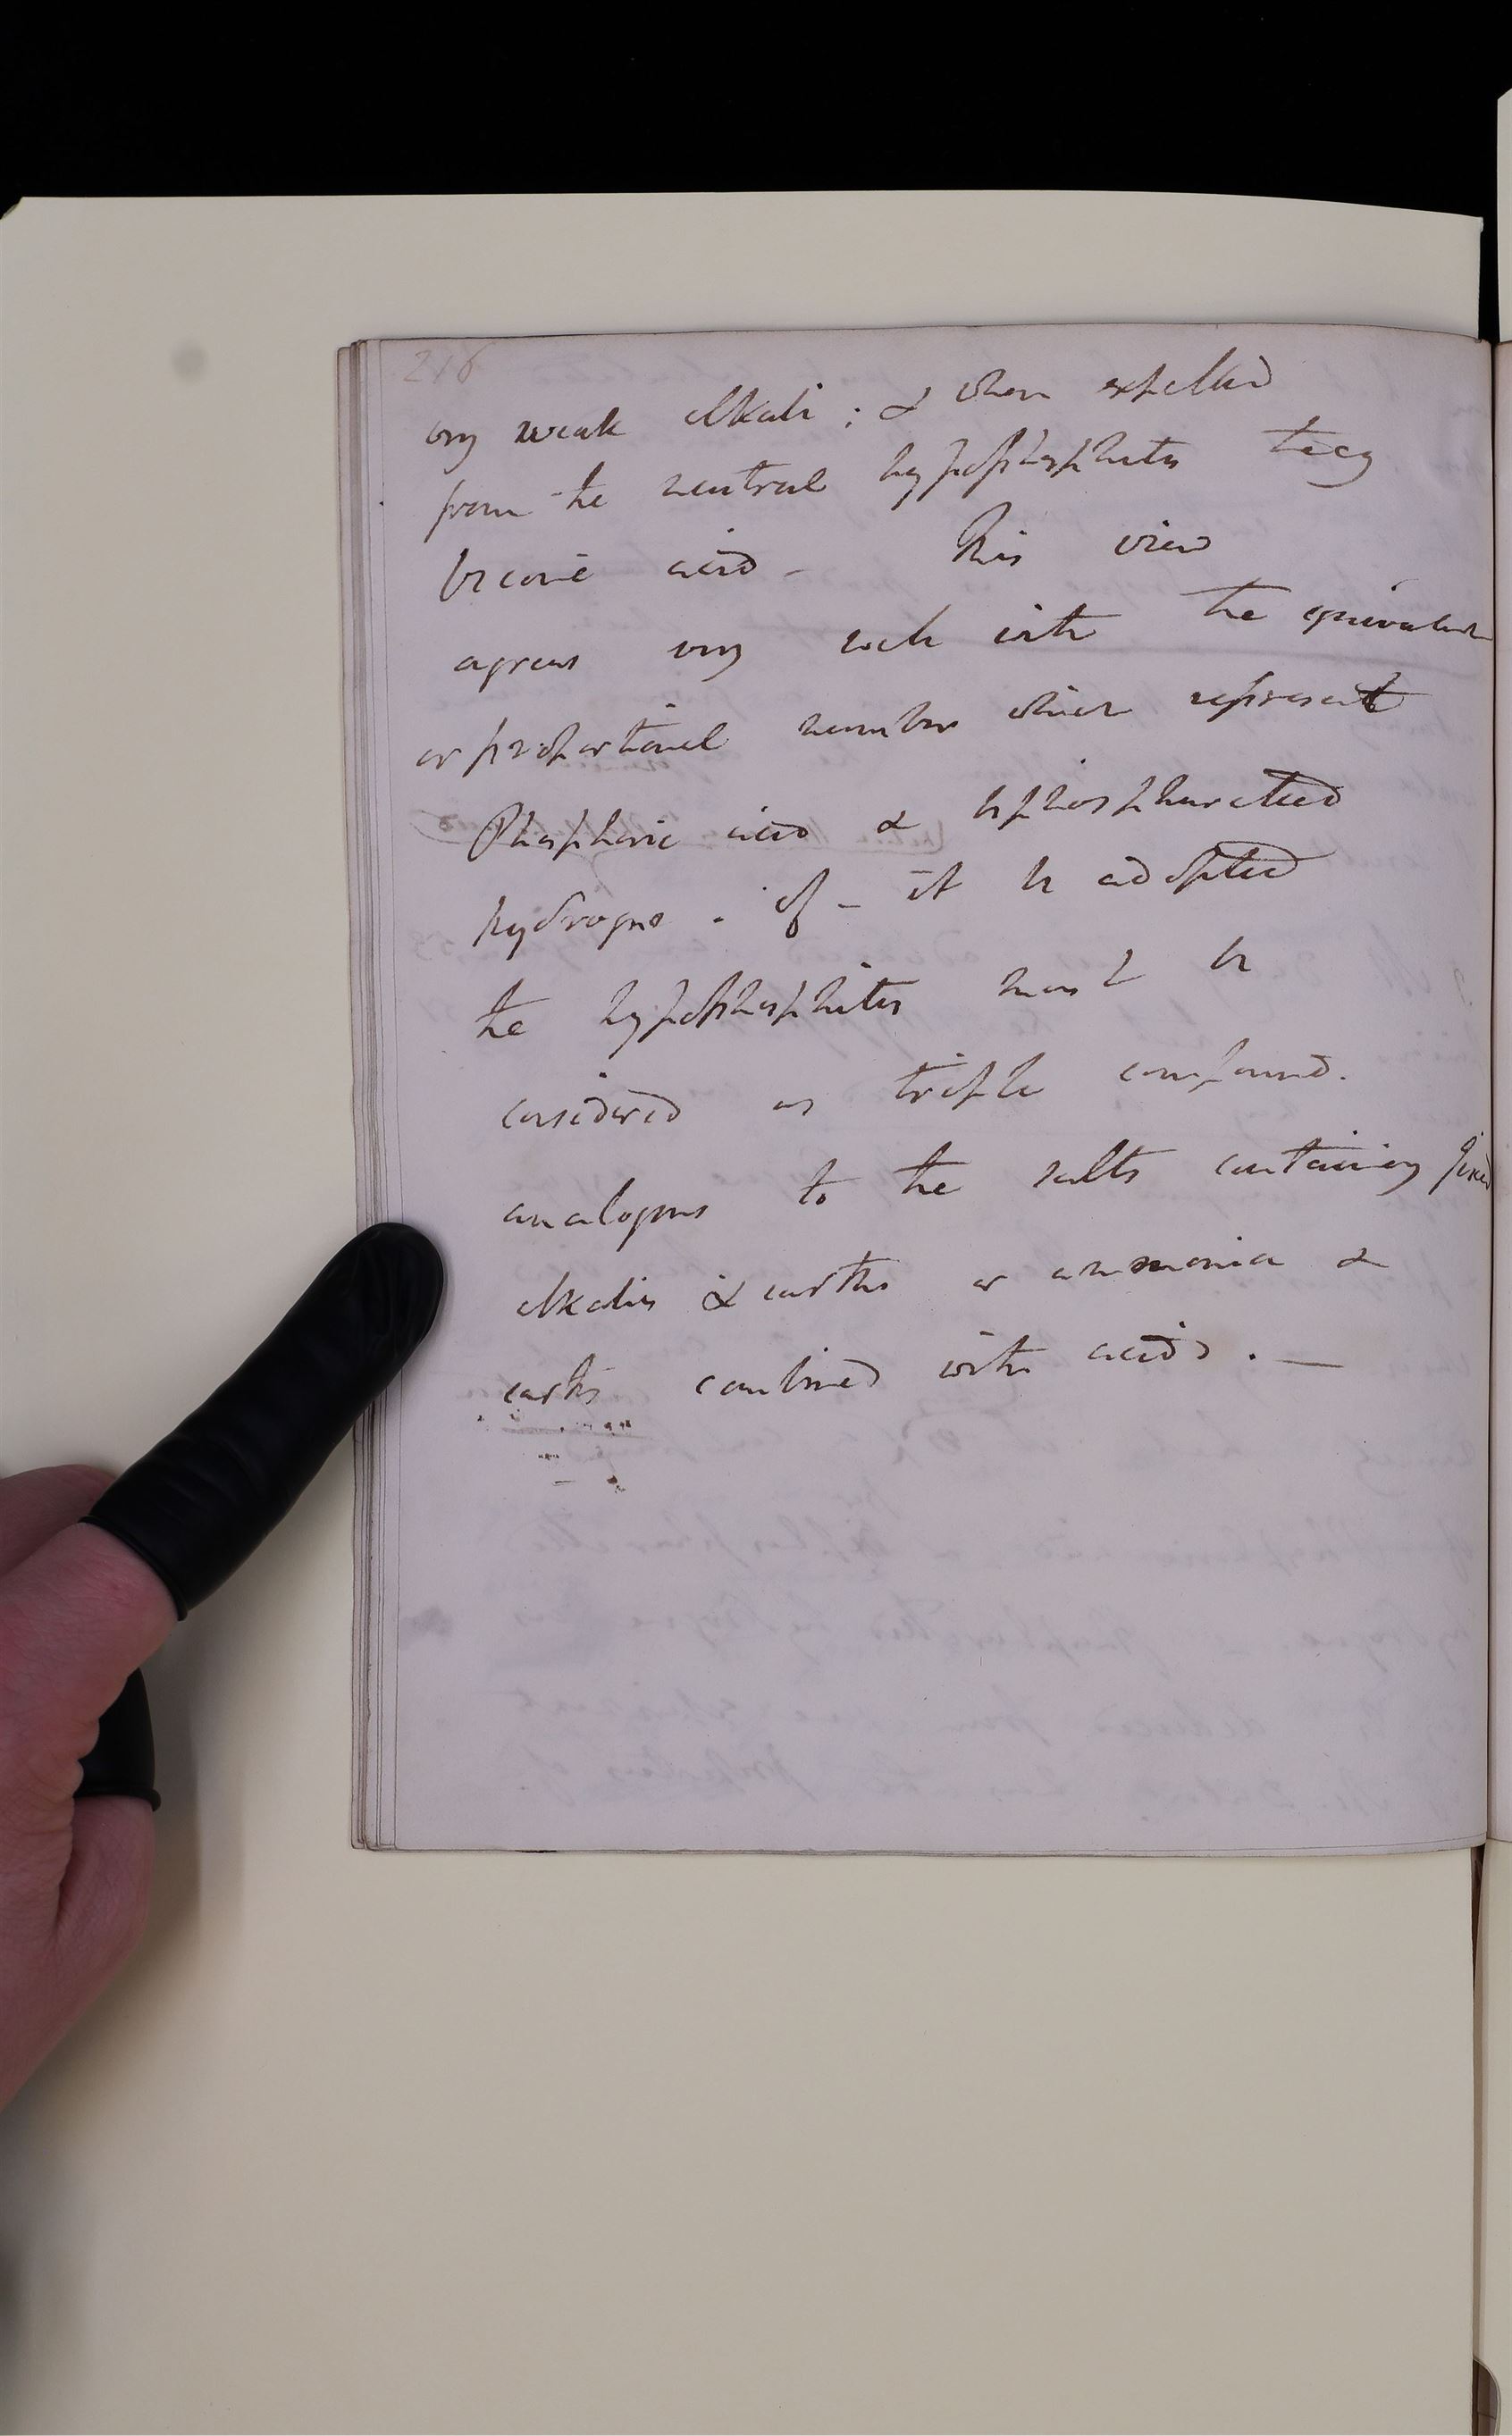 216
very weak alkali; & when expelled
from the neutral hypophosphites they
become acid - This view
agrees very well with the equivalent
or proportional number which represent
Phosphoric acid & biphosphuretted
hydrogene. if - it be adopted
the hypophosphites must be
cosidered as triple compound.
analogous to the salts containing fixed
alkalies & earths or ammonia &
earths combined with acids. —